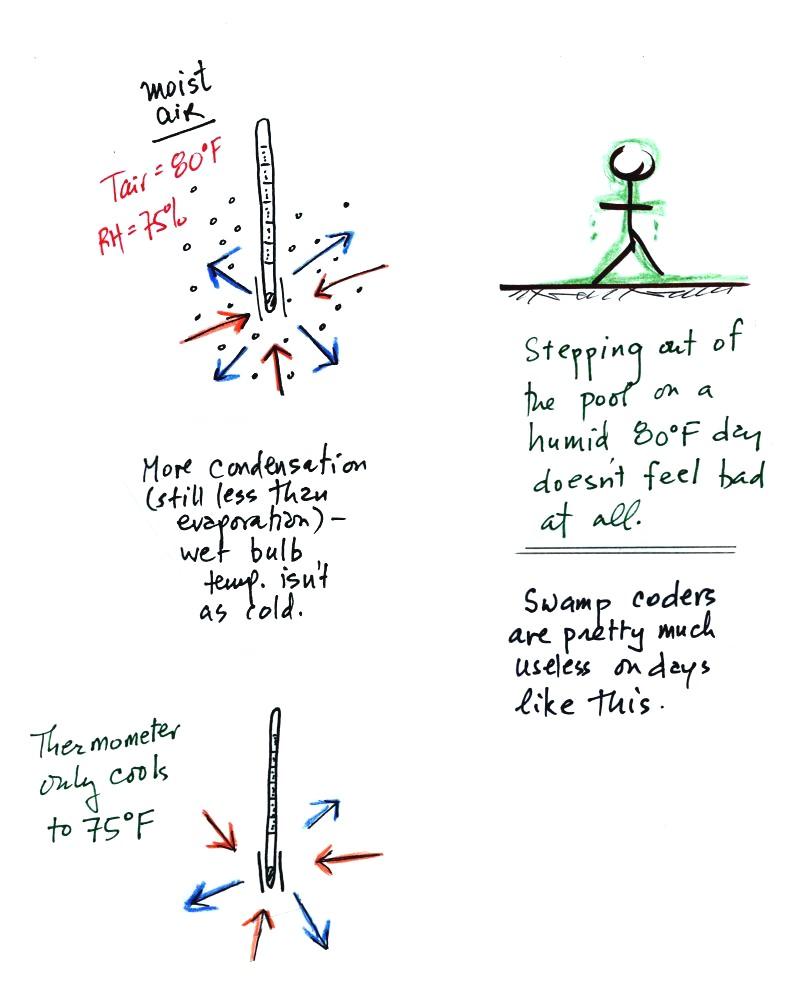 moist
air
Tair = 80°F
RH = 75%
More condensation
(still less than
evaporation) –
wet bulb
temp. isn't
as cold.
Thermometer
only cools
to 75°F
Stepping out of
the pool on a
humid 80°F day
doesn't feel bad
at all.
Swamp coders
are pretty much
useless on days
like this.